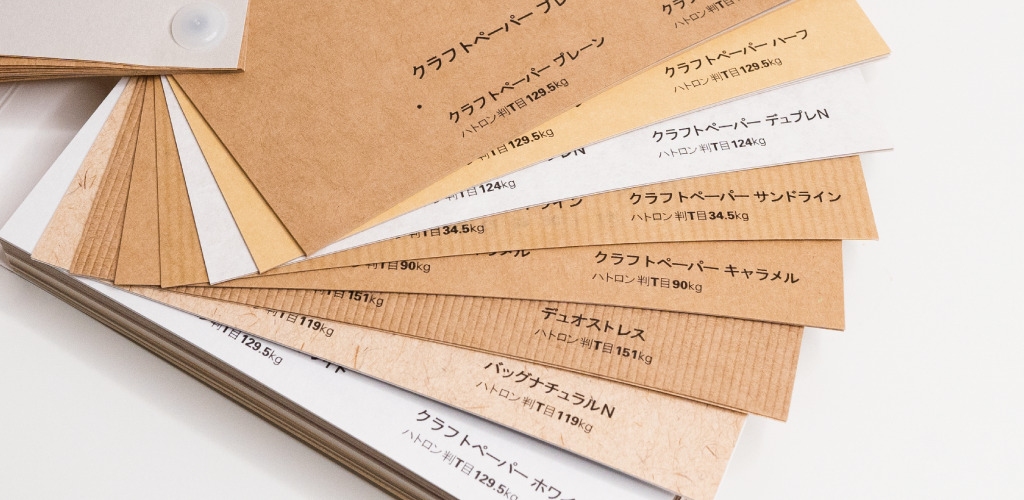 クラフトペーパー プレ
クラフトペーパー プレーン
ハトロン判T目129.5kg
クラフトペーパー ハーフ
ハトロン判T目129.5kg
判T目129.5kg
クラフトペーパー デュプレN
ハトロン判T目124kg
プレN
124kg
クラフトペーパー サンドライン
ハトロン判T目34.5kg
ライン
目34.5kg
クラフトペーパー キャラメル
ハトロン判T目90kg
ラメル
判T目90kg
デュオストレス
ハトロン判T目151kg
T目151kg
バッグナチュラルN
ハトロン判T目119kg
判T目119kg
クラフトペーパー ホワイ
ハトロン判T目129.5kg
判T目129.5kg